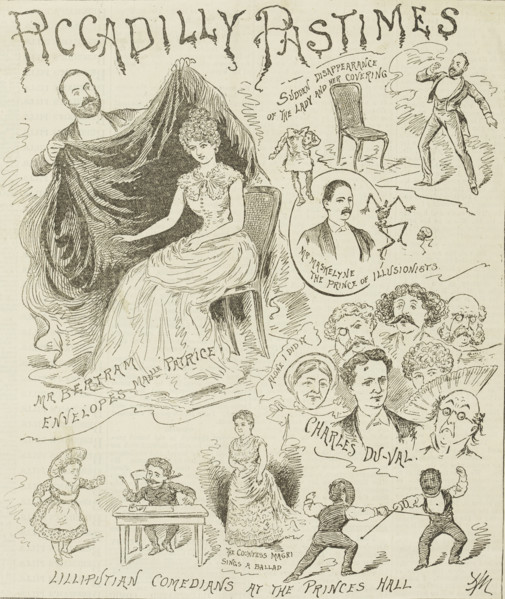 PICCADILLY PASTIMES
SUDDEN DISAPPEARANCE
OF THE LADY AND HER COVERING
MR MASKELYNE
THE PRINCE OF ILLUSIONISTS.
MR BERTRAM
ENVELOPES MADLLE PATRICE!
ALONE I DID IT
CHARLES DU-VAL.
THE COUNTESS MAGRI
SINGS A BALLAD
LILLIPUTIAN COMEDIANS AT THE PRINCES HALL